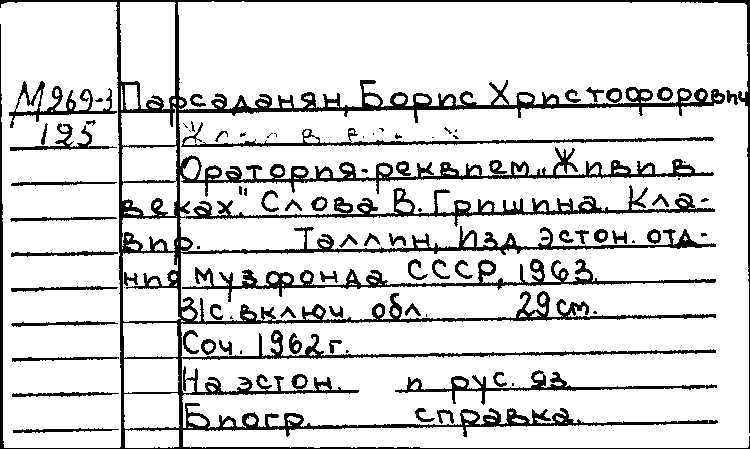 М 269-3 Парсаданян, Борис Христофорович
125 Живи в веках
Оратория-реквием „Живи в
веках". Слова В. Гришина. Кла-
вир. Таллин, Изд. эстон. отд-
ния музфонда СССР, 1963.
31с. включ. обл. 29 cm.
Соч. 1962 г.
На эстон. и рус. яз.
Биогр. справка.